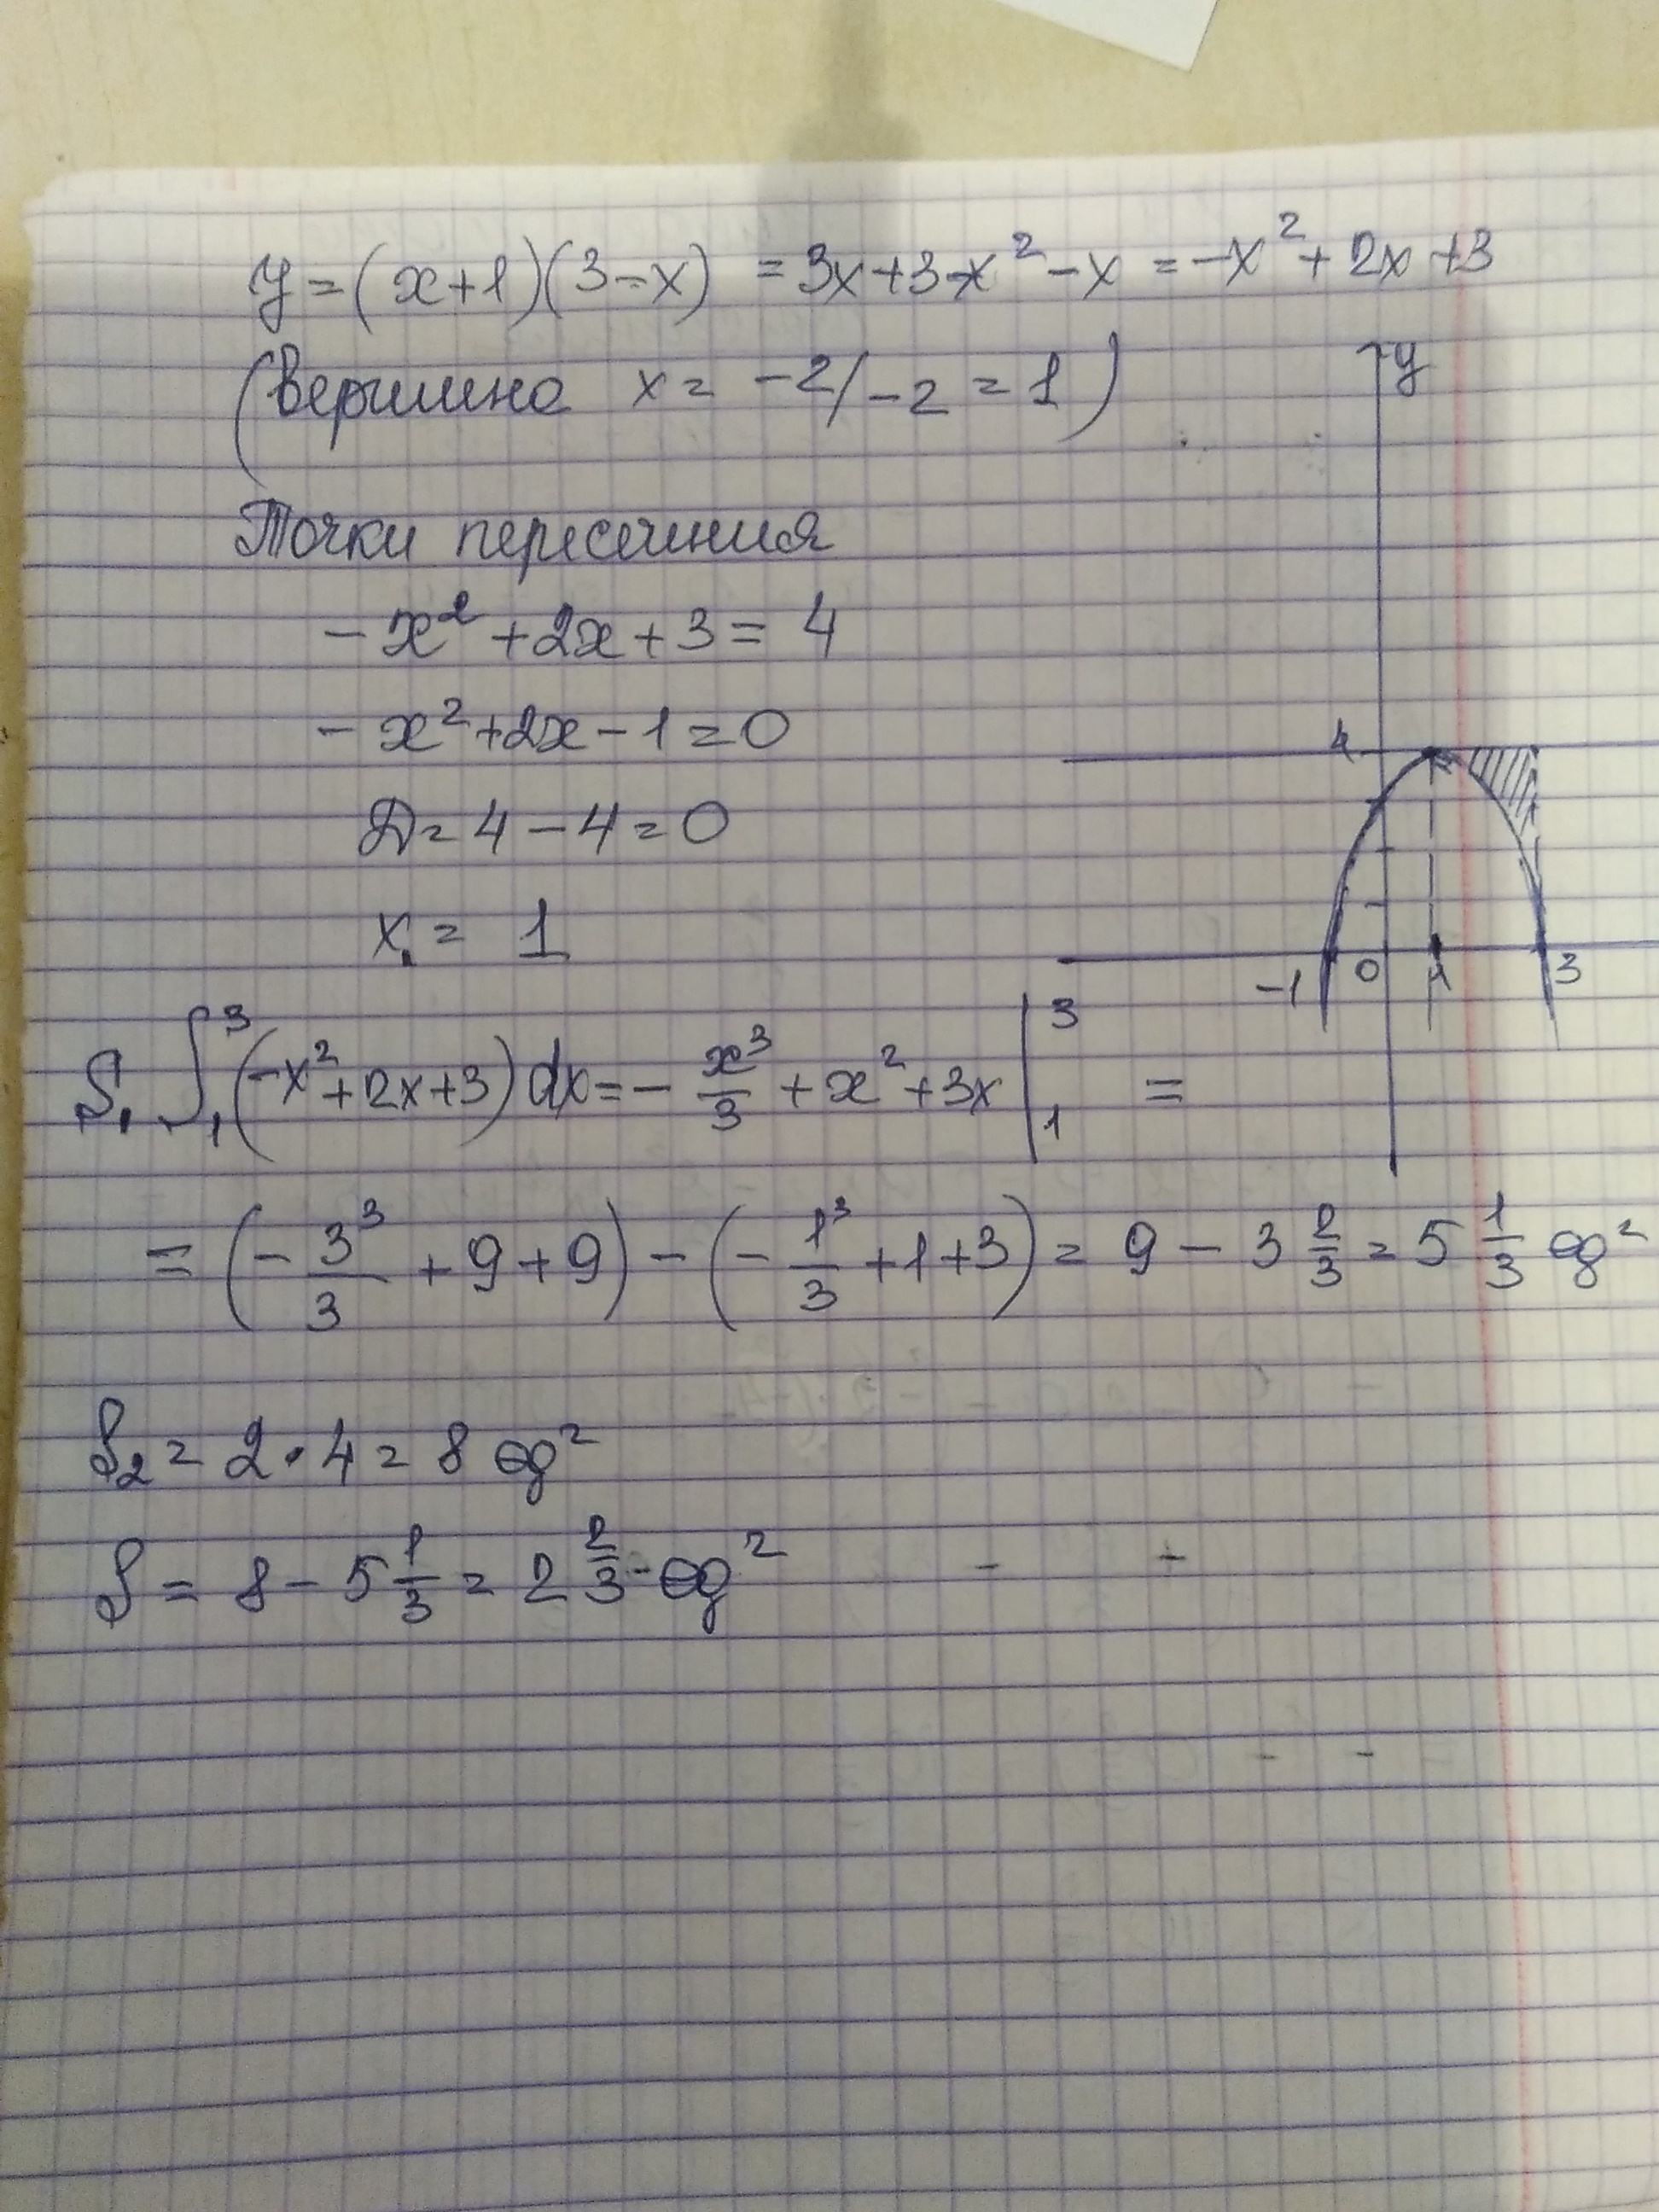 y = (x+1)(3-x) = 3x+3-x² -x = -x²+ 2x+3
(вершина x = -2/-2 = 1)
y
Точки пересечения
-x² +2x+3 = 4
-x²+2x-1=0
4
D= 4-4=0
x. = 1
-1 0 1 3
S₁ ∫₁³(-x²+2x+3)dx = - x³/3 + x²+3x |₁³ =
= (- 3³/3 +9+9) - (- 1³/3 +1+3) = 9 - 3 2/3 = 5 1/3 ед²
S₂ = 2·4 = 8 ед²
S = 8 - 5 1/3 = 2 2/3 ед²